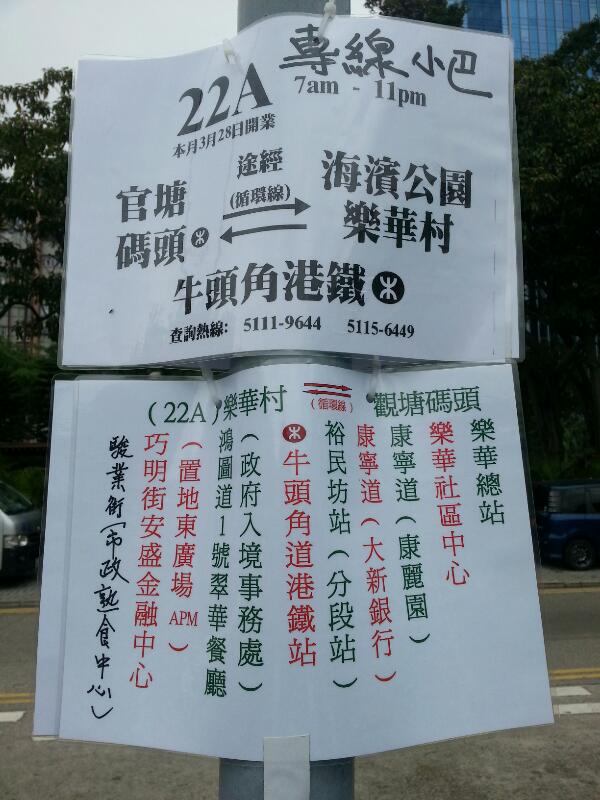 專線小巴
22A
7am - 11pm
本月3月28日開業
途經
(循環線)
官塘
碼頭
海濱公園
樂華村
牛頭角港鐵
查詢熱線: 5111-9644 5115-6449
(22A)樂華村 (循環線) 觀塘碼頭
樂華總站
樂華社區中心
康寧道(康麗園)
康寧道(大新銀行)
裕民坊站(分段站)
牛頭角道港鐵站
(政府入境事務處)
鴻圖道1號翠華餐廳
(置地東廣場 APM)
巧明街安盛金融中心
駿業街(市政熟食中心)